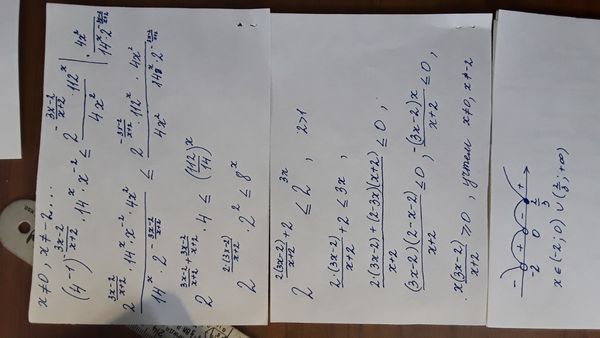 x≠0, x≠-2...
(4^{-1})^{-\frac{3x-2}{x+2}} · 14^x · x^{-2} ≤ \frac{2^{-\frac{3x-2}{x+2}} · 112^x}{4x^2} | · \frac{4x^2}{14^x · 2^{-\frac{3x-2}{x+2}}}
\frac{2^{\frac{3x-2}{x+2}} · 14^x · x^{-2} · 4x^2}{14^x · 2^{-\frac{3x-2}{x+2}}} ≤ \frac{2^{-\frac{3x-2}{x+2}} · 112^x · 4x^2}{4x^2 · 14^x · 2^{-\frac{3x-2}{x+2}}}
2^{\frac{3x-2}{x+2} + \frac{3x-2}{x+2}} · 4 ≤ (\frac{112}{14})^x
2^{\frac{2(3x-2)}{x+2}} · 2^2 ≤ 8^x
2^{\frac{2(3x-2)}{x+2}+2} ≤ 2^{3x}, 2>1
2·\frac{(3x-2)}{x+2} + 2 ≤ 3x,
\frac{2(3x-2)+(2-3x)(x+2)}{x+2} ≤ 0,
\frac{(3x-2)(2-x-2)}{x+2} ≤ 0, \frac{-(3x-2)x}{x+2} ≤ 0,
\frac{x(3x-2)}{x+2} ≥ 0, учтем x≠0, x≠-2
- + - +
-2 0 \frac{2}{3}
x ∈ (-2; 0) ∪ (\frac{2}{3}; +∞)